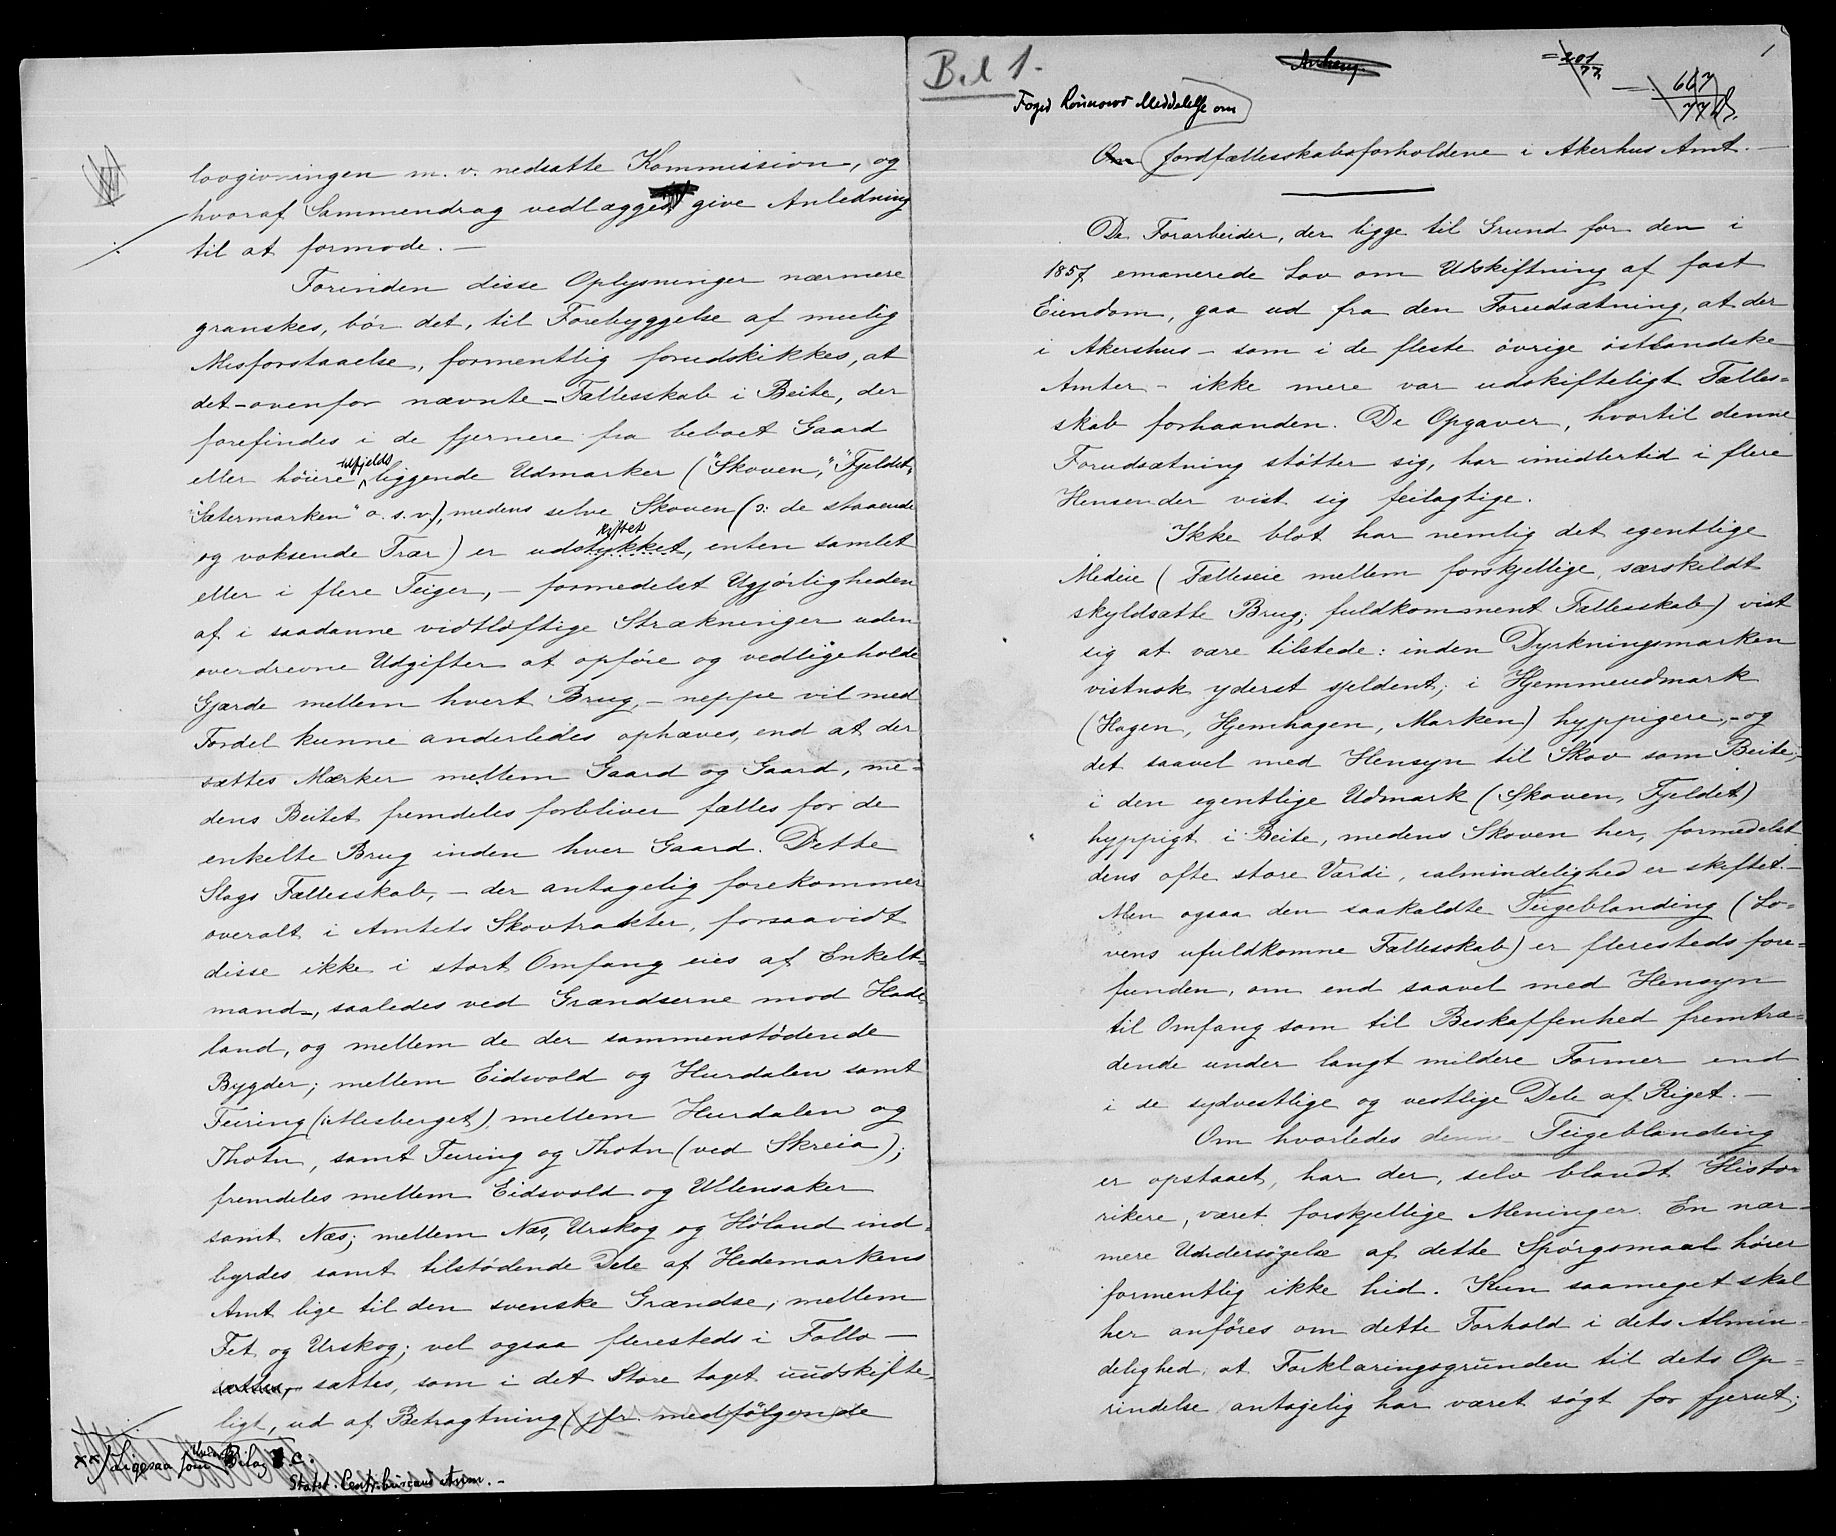 lovgivningen m. v. nedsatte Kommission, og
hvoraf Sammendrag vedlægges give Anledning
til at formode. —
Forinden disse Oplysninger nærmere
granskes, bör det, til Forebyggelse af mulig
Misforstaaelse, formentlig forudskikkes, at
det - ovenfor nævnte - Fællesskab i Beite, der
forefindes i de fjernere fra beboet Gaard
eller höiere tilfjelds liggende Udmarker ("Skoven," "Fjeldet,
"Sætermarken" o. s. v.), medens selve Skoven (ɔ: de staaende
og voksende Trær) er udskyttet udstykket, enten samlet
eller i flere Teiger, - formedelst Ugjörligheden
af i saadanne vidtlöftige Strækninger uden
overdrevne Udgifter at opföre og vedligeholde
Gjærde mellem hvert Brug, - neppe vil med
Fordel kunne anderledes ophæves, end at der
sættes Mærker mellem Gaard og Gaard, me-
dens Beitet fremdeles forbliver fælles for de
enkelte Brug inden hver Gaard. Dette
Slags Fællesskab, - der antagelig forekommer
overalt i Amtets Skovtrakter, forsaavidt
disse ikke i stort Omfang eies af Enkelt=
mand -, saaledes ved Grændserne mod Hade
land, og mellem de der sammenstödende
Bygder; mellem Eidsvold og Hurdalen samt
Feiring (i Misberget), mellem Hurdalen og
Thotn, samt Feiring og Thotn (ved Skreia);
fremdeles mellem Eidsvold og Ullensaker
samt Næs; mellem Næs, Urskog og Höland ind=
byrdes samt tilstödende Dele af Hedemarkens
Amt lige til den svenske Grændse; mellem
Fet og Urskog; vel ogsaa fleresteds i Follo —
sættes, som i det Store taget uudskifte-
ligt, ud af Betragtning (jfr. medfölgende
xx) Ligesaa som Bilag C.
Statist. Centr.bureaus Anm. -
Bil 1.
1
= 201/77
— 667/77
Foged Rumours Meddelelse om
Om Jordfællesskabsforholdene i Akerhus Amt. —
De Forarbeider, der ligge til Grund for den i
1857 emanerede Lov om Udskiftning af fast
Eiendom, gaa ud fra den Forudsætning, at der
i Akershus - som i de fleste övrige östlandske
Amter - ikke mere var udskifteligt Fælles=
skab forhaanden. De Opgaver, hvortil denne
Forudsætning stötter sig, har imidlertid i flere
Hensender vist sig feilagtige.
Ikke blot har nemlig det egentlige
Medeie (Fælleseie mellem forskjellige, særskildt
skyldsatte Brug; fuldkomment Fællesskab) vist
sig at være tilstede: inden Dyrkningsmarken
vistnok yderst sjeldent; i Hjemmeudmark
(Hagen, Hjemhagen, Marken) hyppigere, - og
det saavel med Hensyn til Skov som Beite, -
i den egentlige Udmark (Skoven, Fjeldet)
hyppigt i Beite, medens Skoven her, formedelst
dens ofte store Værdi, ialmindelighed er skiftet. -
Men ogsaa den saakaldte Teigeblanding (Lo=
vens ufuldkomne Fællesskab) er fleresteds fore=
funden, om end saavel med Hensyn
til Omfang som til Beskaffenhed fremtræ=
dende under langt mildere Former end
i de sydvestlige og vestlige Dele af Riget. —
Om hvorledes denne Teigeblanding
er opstaaet, har der, selv blandt Histo-
rikere, været forskjellige Meninger. En nær-
mere Undersögelse af dette Spörgsmaal hörer
formentlig ikke hid. Kun saameget skal
her anföres om dette Forhold i dets Almin-
delighed, at Forklaringsgrunden til dets Op=
rindelse antagelig har været sögt for fjernt;